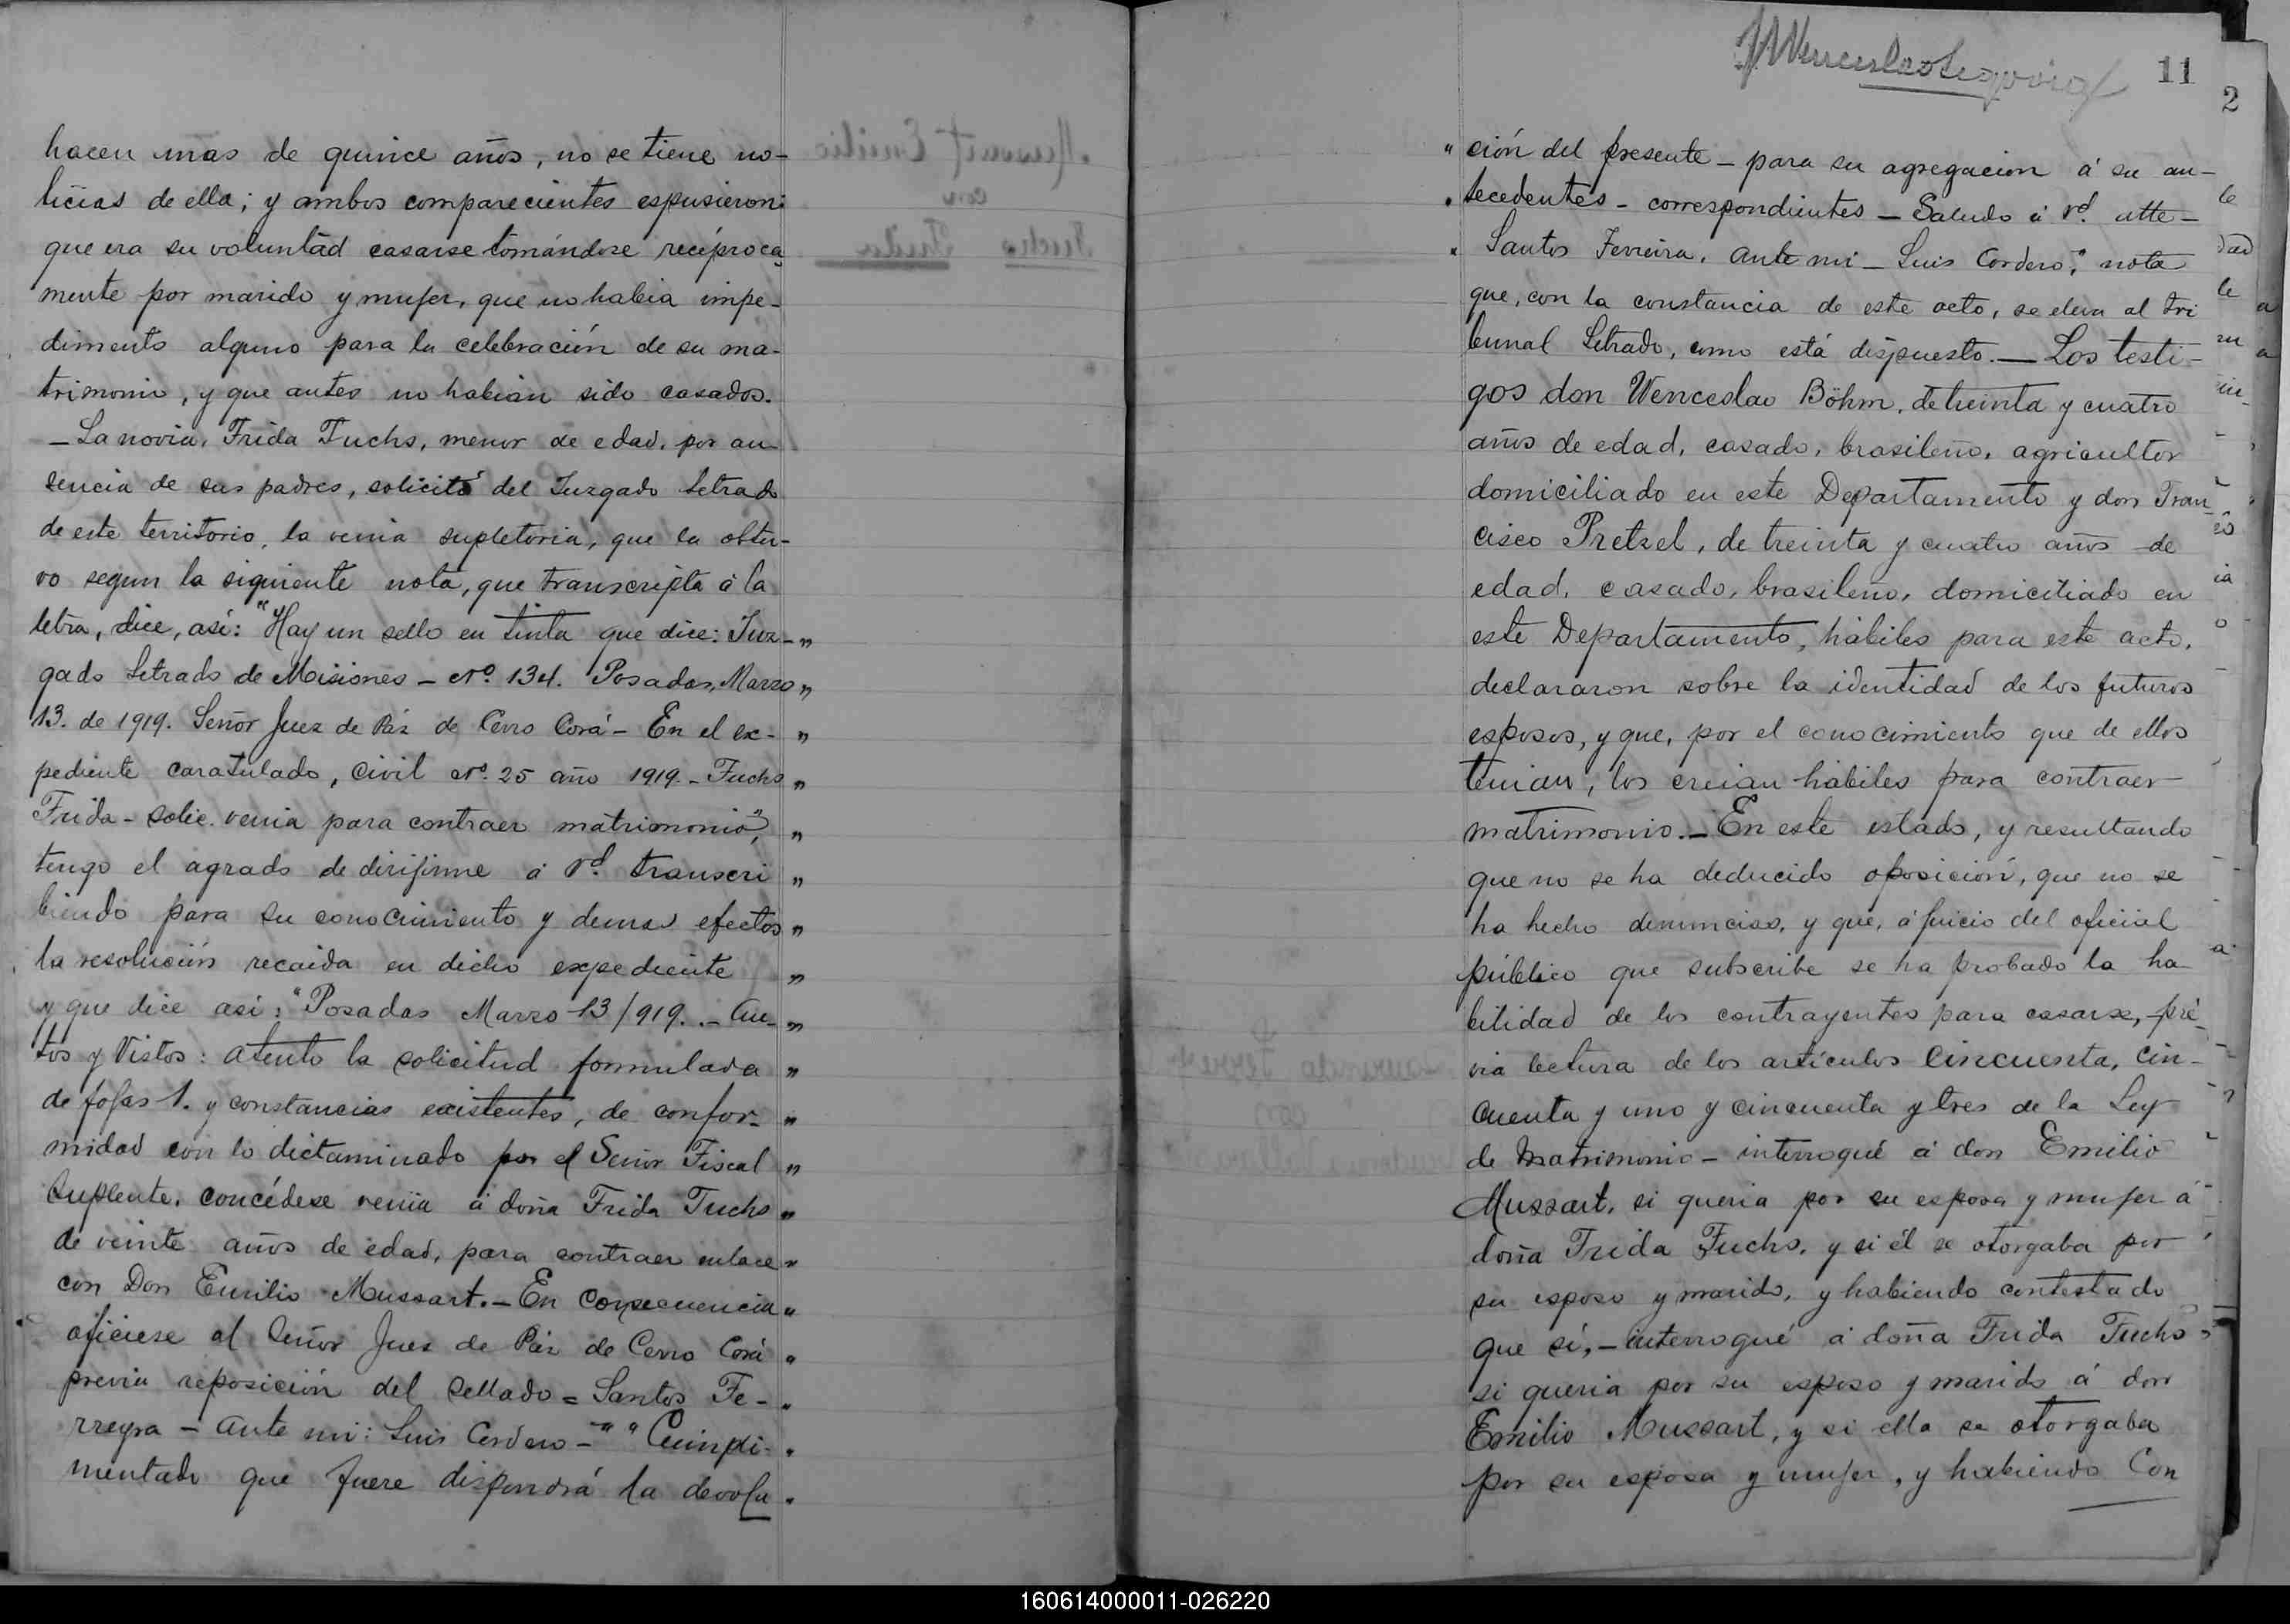 hacen mas de quince años, no se tiene no-
ticias de ella; y ambos comparecientes espusieron:
que era su voluntad casarse tomándose recíproca
mente por marido y mujer, que no habia impe-
dimento alguno para la celebración de su ma-
trimonio, y que antes no habian sido casados.
- La novia, Frida Fuchs, menor de edad, por au-
sencia de sus padres, solicitó del Juzgado Letrado
de este territorio, la venia supletoria, que la obtu-
vo segun la siguiente nota, que transcripta á la
letra, dice, asi: "Hay un sello en tinta que dice: Juz- "
gado Letrado de Misiones - No. 134. Posadas, Marzo "
13. de 1919. Señor Juez de Paz de Cerro Corá - En el ex- "
pediente caratulado, Civil No. 25 año 1919 - Fuchs "
Frida - solic. venia para contraer matrimonio", "
tengo el agrado de dirijirme á Vd. transcri "
biendo para su conocimiento y demas efectos "
la resolución recaida en dicho expediente "
y que dice asi: "Posadas Marzo 13/919. - Au- "
tos y Vistos: atento la solicitud formulada "
de fojas 1. y constancias existentes, de confor- "
midad con lo dictaminado por el Señor Fiscal "
Suplente. concédese venia á doña Frida Fuchs "
de veinte años de edad, para contraer enlace "
con Don Emilio Mussart. - En consecuencia "
oficiese al Señor Juez de Páz de Cerro Corá "
previa reposición del sellado = Santos Fe- "
rreyra - Ante mi: Luis Cordero - " " Cumpli- "
mentado que fuere dispondrá la devolu "
Wenceslao Segovia
11
2
" ción del presente - para su agregacion á su an-
" tecedentes - correspondientes - Saludo á Vd. atte -
" Santos Ferreira. Ante mi - Luis Cordero", nota
que, con la constancia de este acto, se eleva al Tri
bunal Letrado, como está dispuesto. - Los testi-
gos don Wenceslao Böhm, de treinta y cuatro
años de edad, casado, brasileño, agricultor
domiciliado en este Departamento y don Fran-
cisco Pretzel, de treinta y cuatro años de
edad, casado, brasileño, domiciliado en
este Departamento, hábiles para este acto,
declararon sobre la identidad de los futuros
esposos, y que, por el conocimiento que de ellos
tenian, los creian hábiles para contraer
matrimonio. - En este estado, y resultando
que no se ha deducido oposición, que no se
ha hecho denuncias, y que, á juicio del oficial
público que subscribe se ha probado la ha
bilidad de los contrayentes para casarse, pré-
via lectura de los artículos cincuenta, cin-
cuenta y uno y cincuenta y tres de la Ley
de Matrimonio - interrogué á don Emilio
Mussart, si queria por su esposa y mujer á
doña Frida Fuchs, y si él se otorgaba por
su esposo y marido, y habiendo contestado
que sí, - interrogué á doña Frida Fuchs
si queria por su esposo y marido á don
Emilio Mussart, y si ella se otorgaba
por su esposa y mujer, y habiendo Con
160614000011-026220